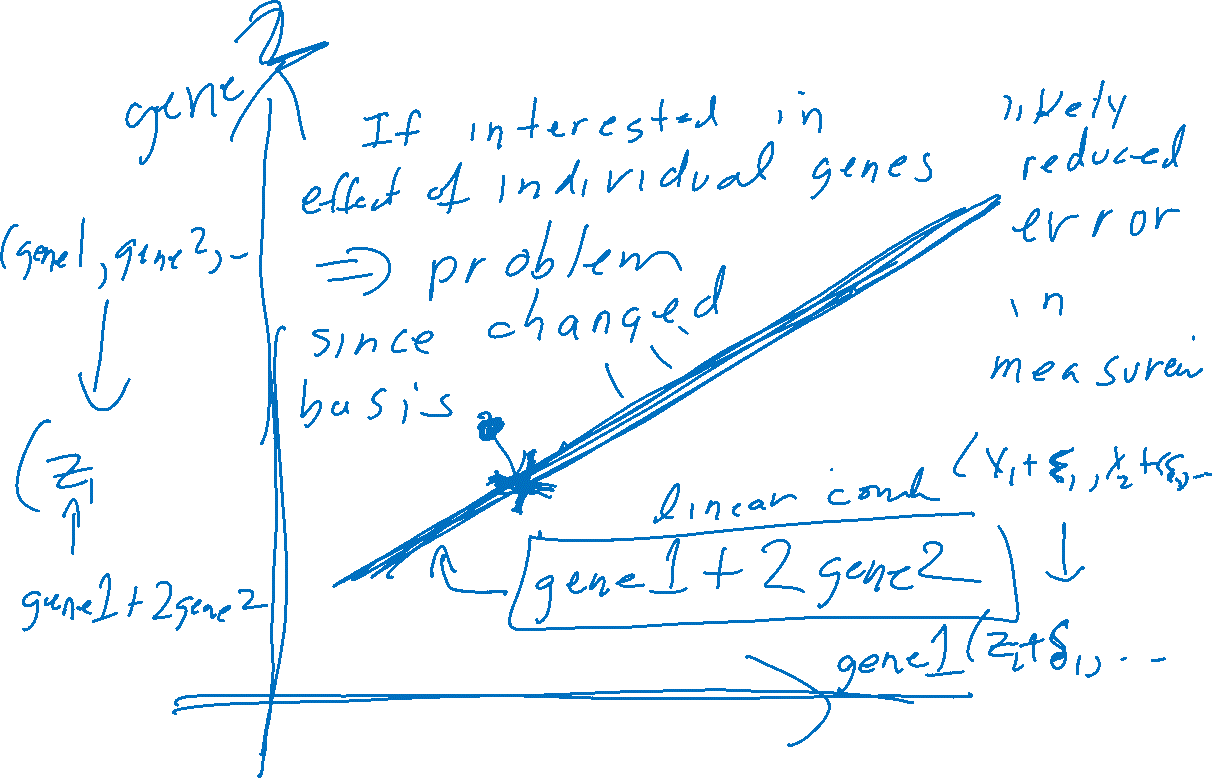 gene 2
If interested in
effect of individual genes
⇒ problem
since changed
basis
likely
reduced
error
in
measurein
(gene1, gene2, -
(z₁
gene1 + 2gene2
linear comb
gene1 + 2 gene2
gene1
(x₁ + ξ₁, x₂ + ξ₂, --
(z₁ + δ₁, ...